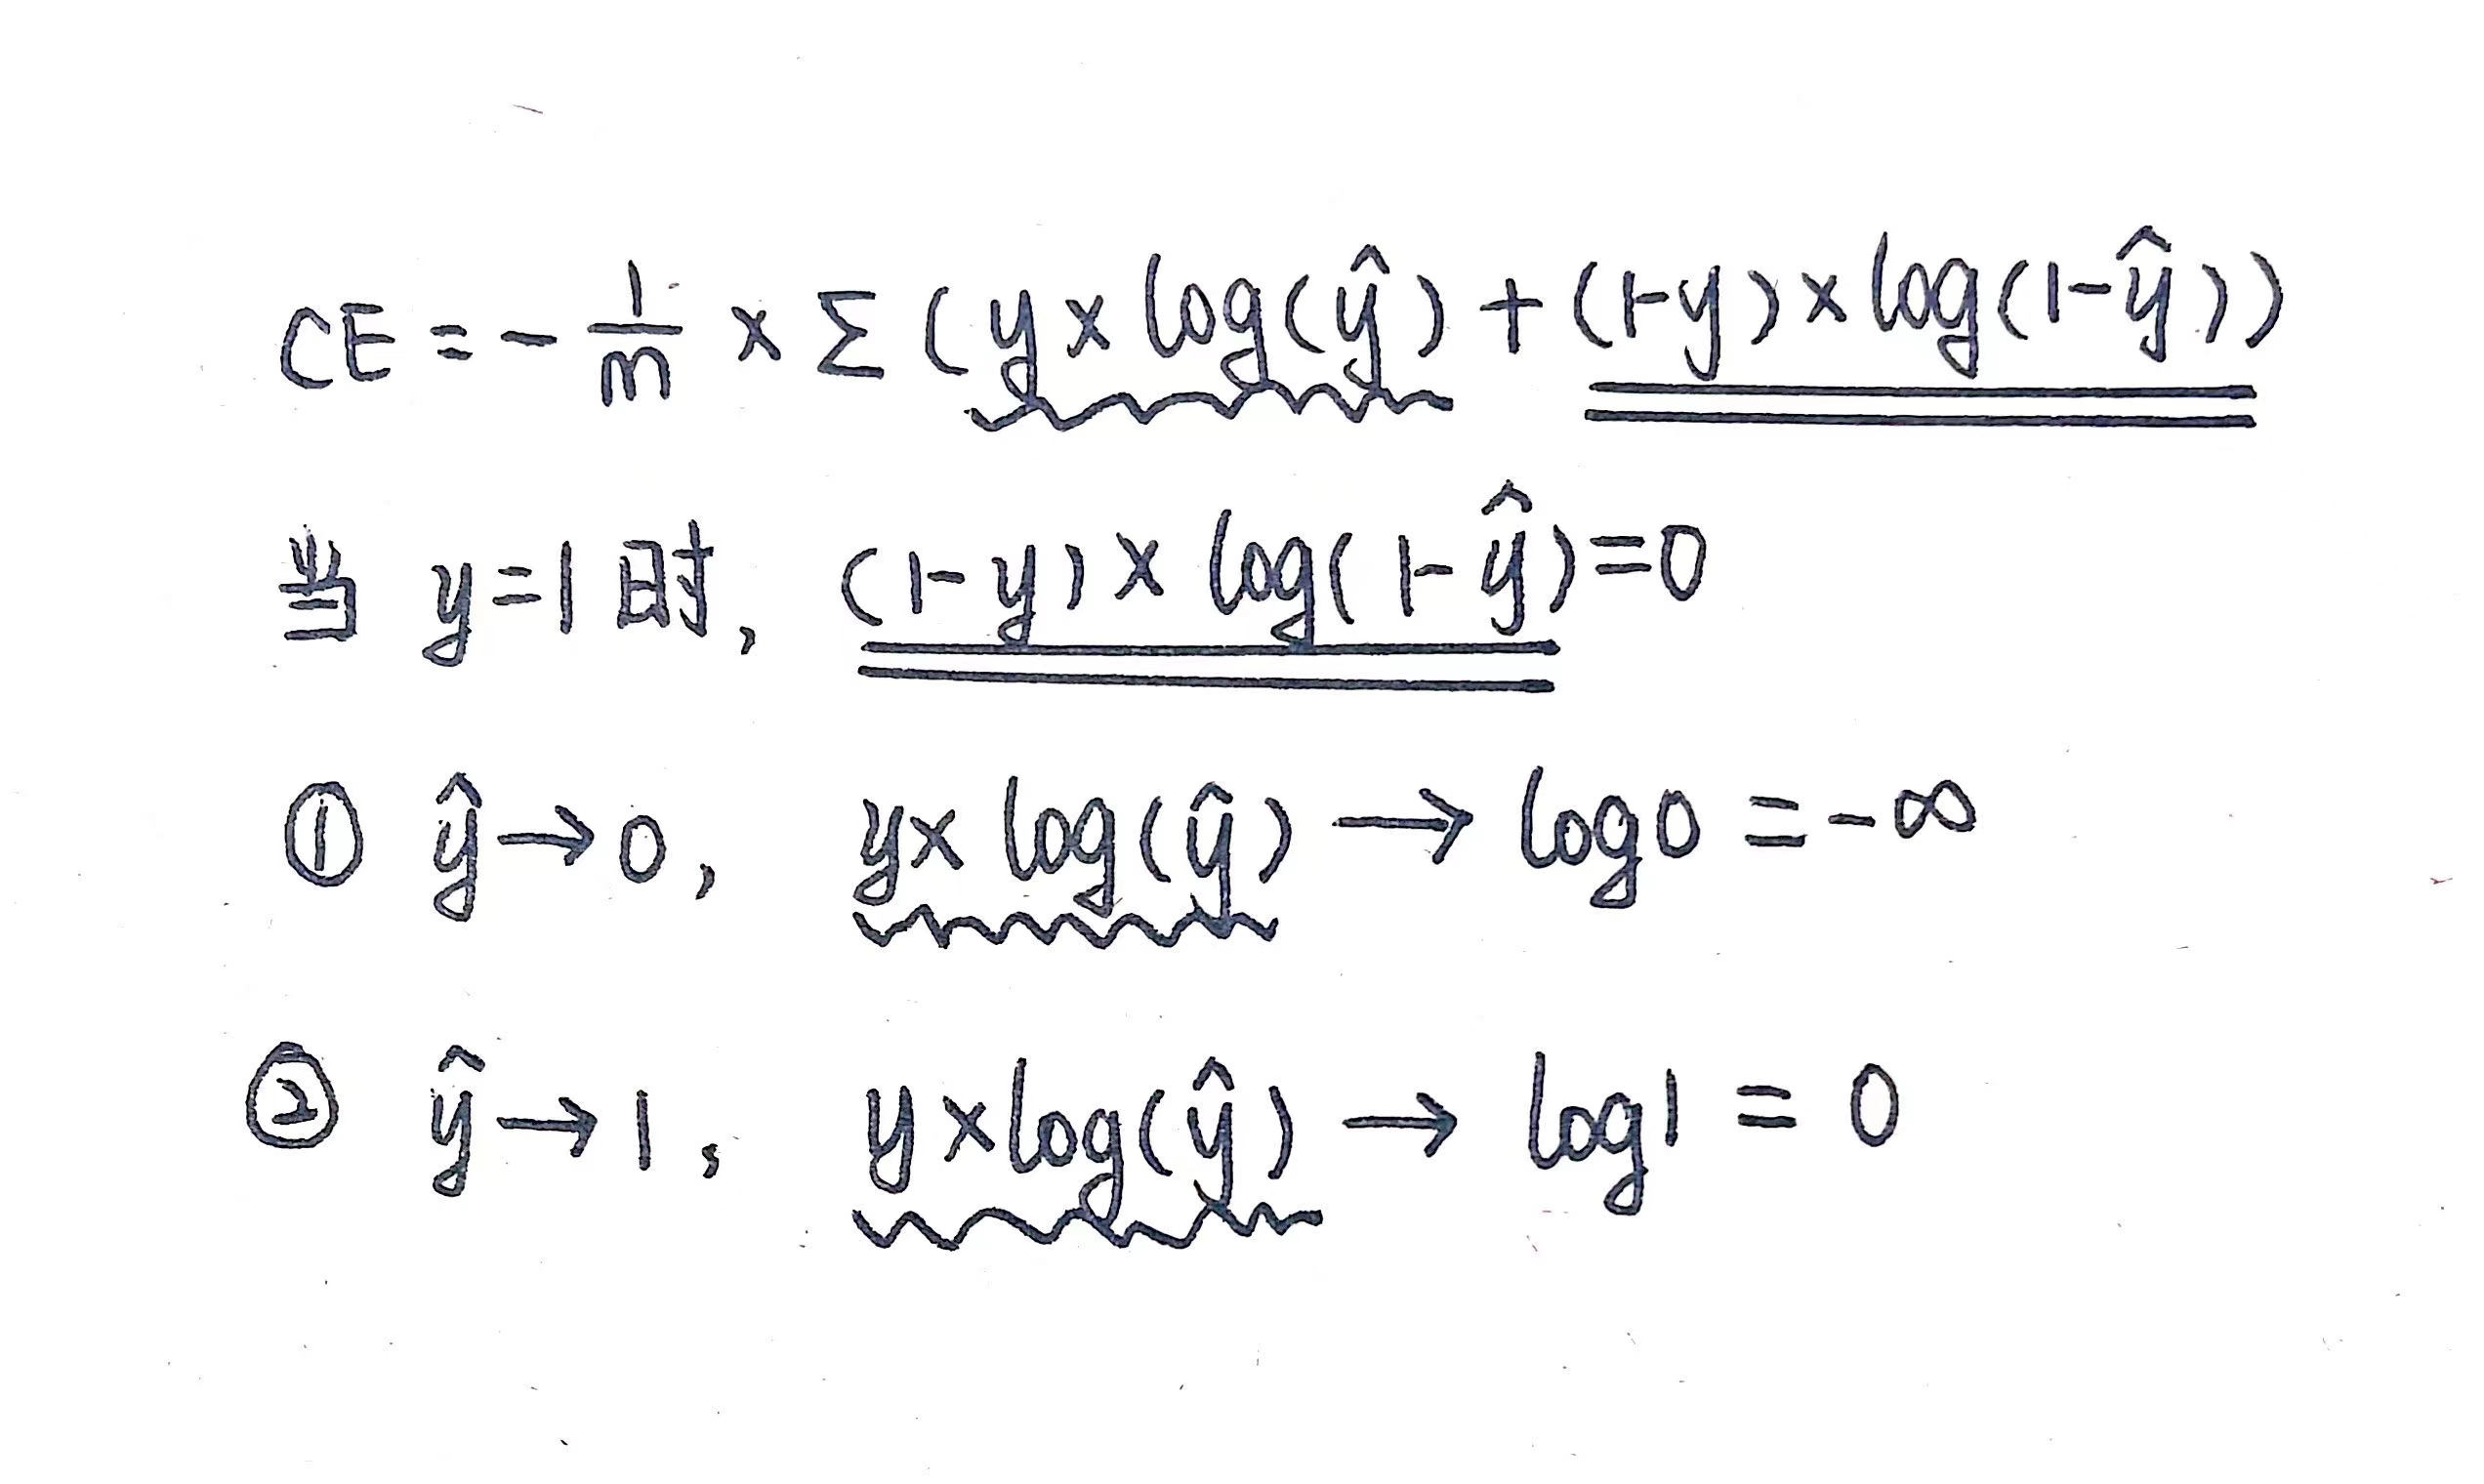 CE = - 1/m × Σ (y × log(ŷ) + (1-y) × log(1-ŷ))
当 y=1 时, (1-y) × log(1-ŷ)=0
① ŷ→0, y× log(ŷ) → log0 = -∞
② ŷ→1, y×log(ŷ) → log1 = 0